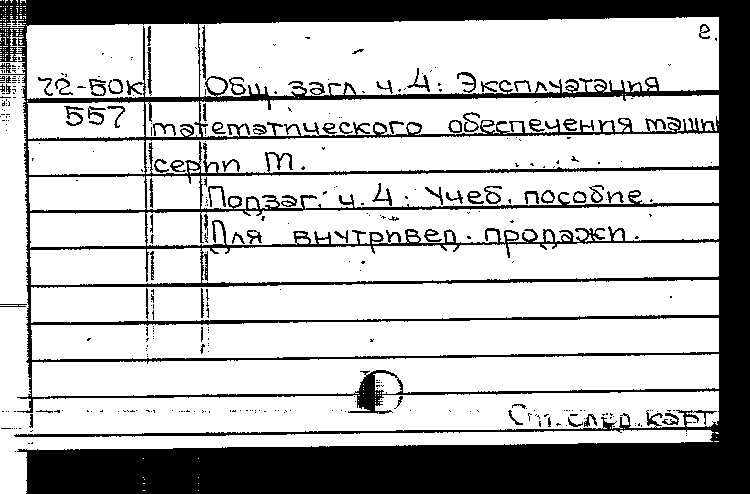 2.
72-50к Общ. загл. ч. 4: Эксплуатация
557 математического обеспечения машин
серии М.
Подзаг. ч. 4: Учеб. пособие.
Для внутривед. продажи.
См. след. карт.